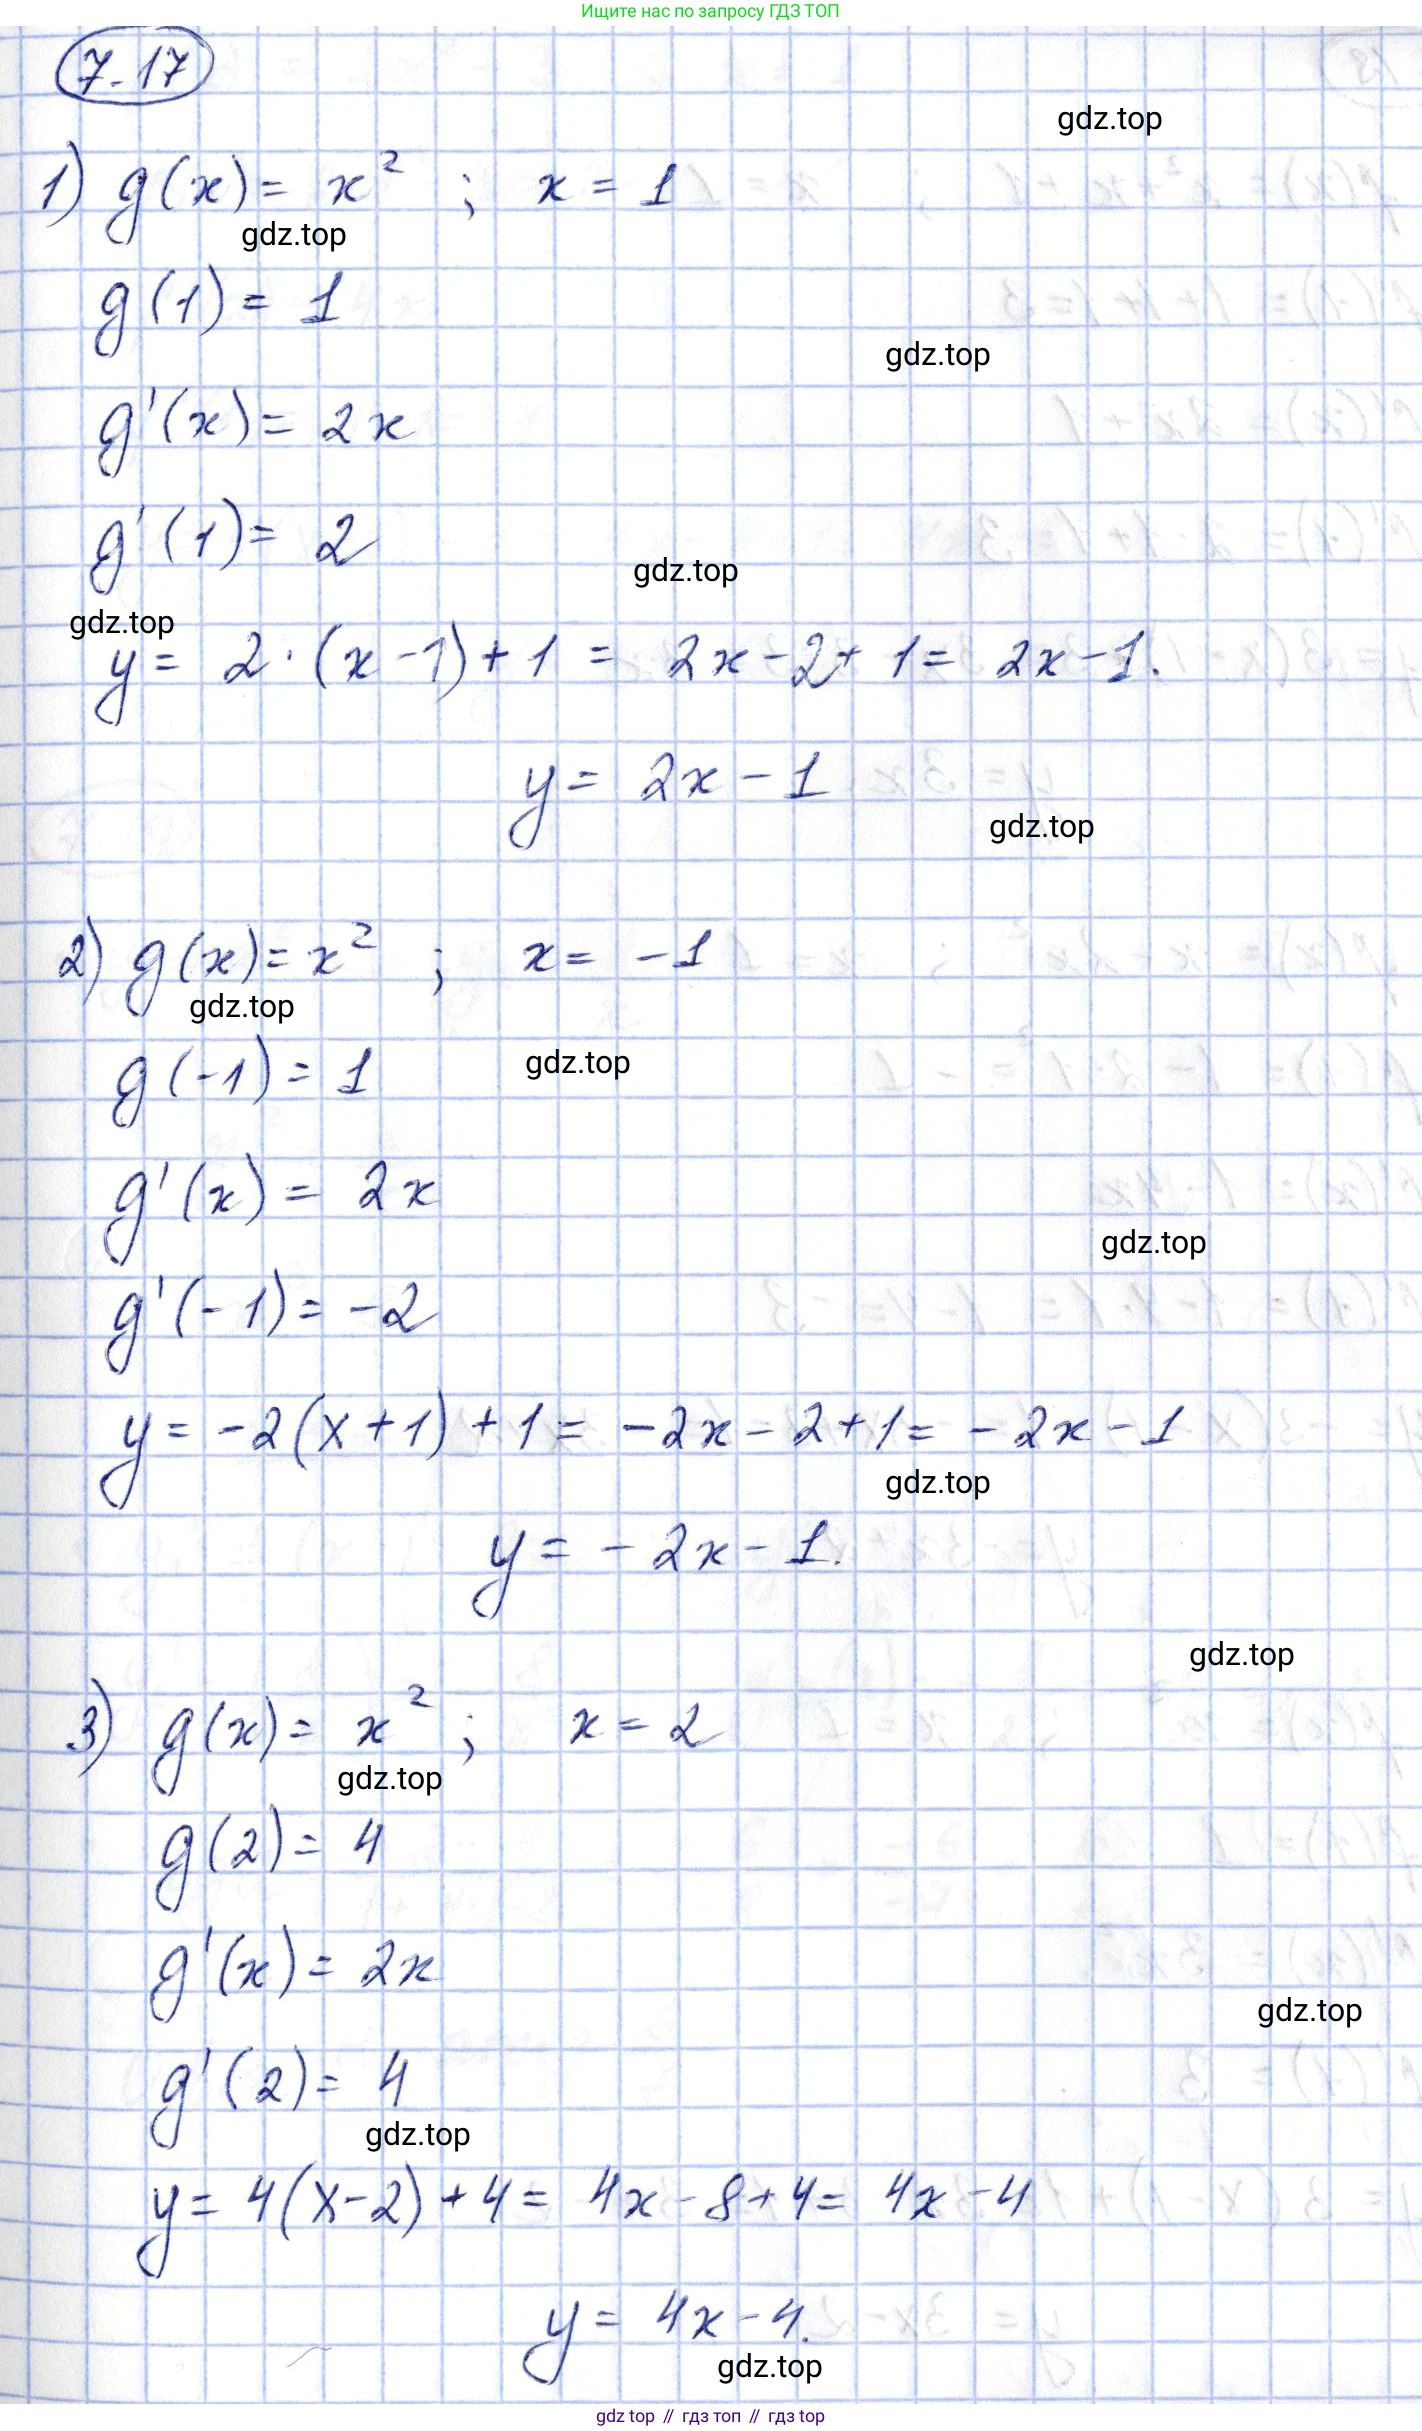 Ищите нас по запросу ГДЗ ТОП
7.17
gdz.top
1) g(x) = x² ; x = 1
gdz.top
g(1) = 1
gdz.top
g'(x) = 2x
g'(1) = 2
gdz.top
gdz.top
y = 2·(x-1)+1 = 2x-2+1 = 2x-1.
y = 2x-1
gdz.top
2) g(x) = x² ; x = -1
gdz.top
g(-1) = 1
gdz.top
g'(x) = 2x
gdz.top
g'(-1) = -2
y = -2(x+1)+1 = -2x-2+1 = -2x-1
gdz.top
y = -2x-1.
gdz.top
3) g(x) = x² ; x = 2
gdz.top
g(2) = 4
g'(x) = 2x
gdz.top
g'(2) = 4
gdz.top
y = 4(x-2)+4 = 4x-8+4 = 4x-4
y = 4x-4.
gdz.top
gdz top // гдз топ // gdz top